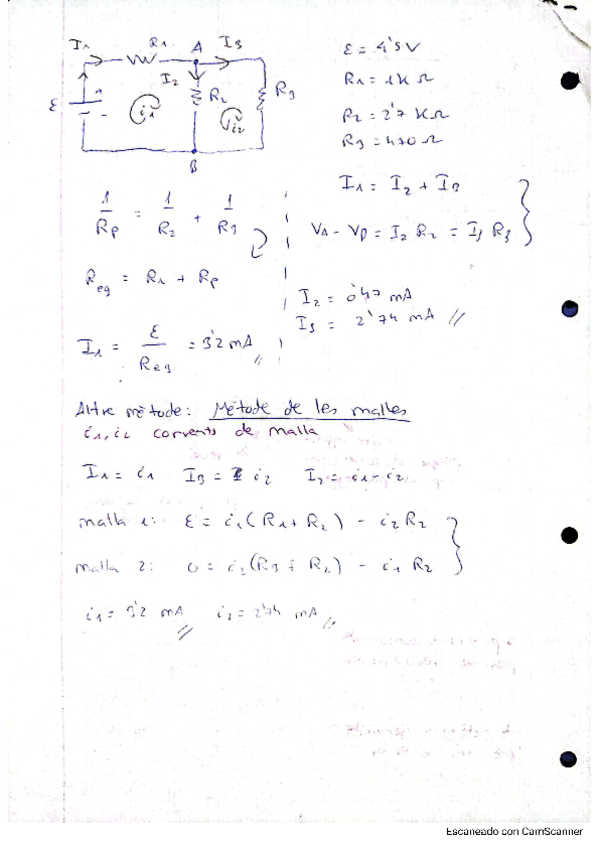 I1 R1 A I3
I2
ε i1 R2 i2 R3
B
ε = 4'5 V
R1 = 1 K Ω
R2 = 2'7 KΩ
R3 = 470 Ω
I1 = I2 + I3
1/Rp = 1/R2 + 1/R3
VA - VB = I2 R2 = I3 R3
Req = R1 + Rp
I2 = 0'47 mA
I3 = 2'74 mA //
I1 = ε/Req = 3'2 mA //
Altre mètode: Mètode de les malles
i1, i2 corrents de malla
I1 = i1 I3 = i2 I2 = i1 - i2
malla 1: ε = i1 (R1 + R2) - i2 R2
malla 2: 0 = i2 (R3 + R2) - i1 R2
i1 = 3'2 mA // i2 = 2'74 mA //
Escaneado con CamScanner